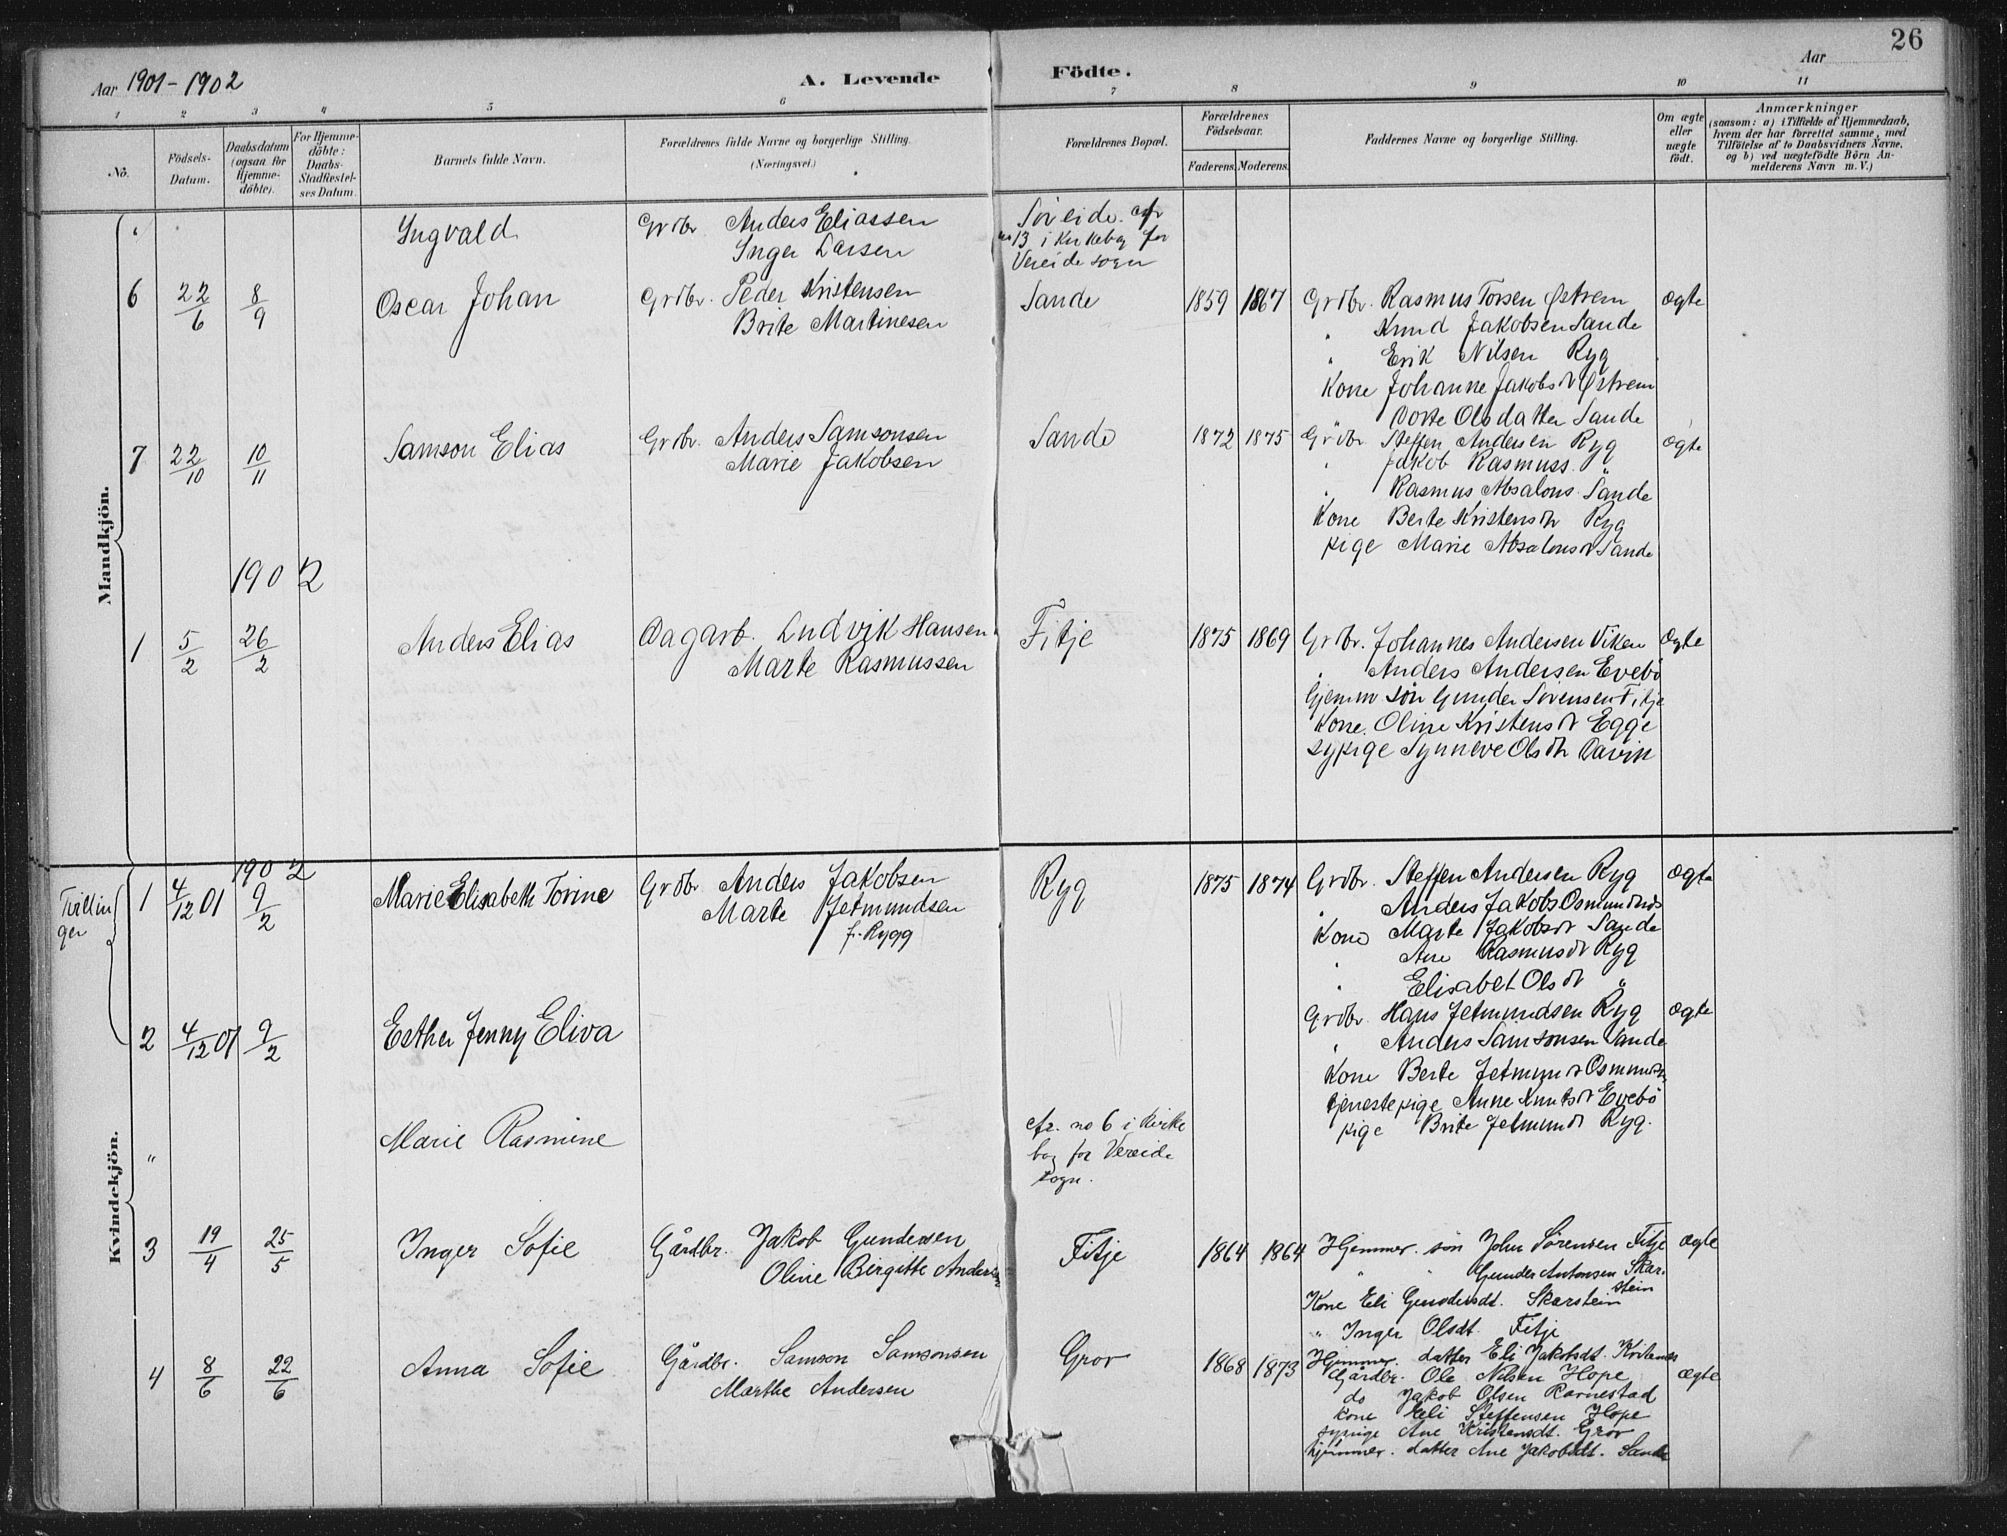 26
Aar 1901-1902
A. Levende Födte.
Aar
1 2 3 4 5 6 7 8 9 10 11
No.
Födsels-Datum.
Daabsdatum (ogsaa for Hjemme-döbte).
For Hjemme-döbte: Daabs-Stadfestel-ses Datum.
Barnets fulde Navn.
Forældrenes fulde Navne og borgerlige Stilling.
(Næringsvei.)
Forældrenes Bopæl.
Forældrenes Födselsaar.
Faderens. Moderens.
Faddernes Navne og borgerlige Stilling.
Om ægte eller uægte födt.
Anmærkninger
(saasom: a) i Tilfælde af Hjemmedaab, hvem der har forrettet samme, med Tilföielse af to Daabsvidners Navne, og b) ved uægtefödte Börn Anmelderens Navn m. V.)
Mandkjön.
" Ingvald Grdbr Anders Eliassen
Inger Larsen
Söreide. cfr
no 13 i Kirkebog for
Vereide sogn
6 22/6 8/9 Oscar Johan Grdbr. Peder Kristensen
Brite Martinesen
Sande 1859 1867 Grdbr. Rasmus Torsen Østrem ægte
" Knud Jakobsen Sande
" Erik Nilsen Ryg
Kone Johanne Jakobsdt Østrem
Dorte Olsdatter Sande
7 22/10 10/11 Samson Elias Grdbr. Anders Samsonsen
Marie Jakobsen
Sande 1872 1875 Grdbr Steffen Andersen Ryg ægte
" Jakob Rasmuss. "
" Rasmus Absalons. Sande
Kone Berte Kristensdtr Ryg
pige Marie Absalonsdt Sande
1902
1 5/2 26/2 Anders Elias Dagarb. Ludvik Hansen
Marte Rasmussen
Fitje 1875 1869 Grdbr. Johannes Andersen Viken ægte
" Anders Andersen Evebö
Hjemm sön Gunder Sörensen Fitje
Kone. Oline Kristensdt Egge
sypige Synneve Olsdtr Davik
Kvindekjön.
1902
Tvillinger
1 4/12 01 9/2 Marie Elisabeth Torine Grdbr Anders Jakobsen
Marte Jetmundsen
f. Rygg
Ryg 1875 1874 Grdbr. Steffen Andersen Ryg ægte
" Anders Jakobs Osmundnes
Kone Marte Jakobsdt Sande
" Ane Rasmusdt Ryg
" Elisabet Olsdt "
2 4/12 01 9/2 Esther Jenny Eliva
Grdbr Hans Jetmundsen Ryg ægte
" Anders Samsonsen Sande
Kone Berte Jetmundt Osmundn.
tjenestepige Anne Knutsdt Evebö
pige Brite Jetmundt Ryg.
" Marie Rasmine
Cfr. no 6 i Kirke
bog for Vereide
sogn.
3 19/4 25/5 Inger Sofie Gårdbr. Jakob Gundersen
Oline Birgitte Andersen
Fitje 1864 1864 Hjemmev. sön John Sörensen Fitje ægte
" " Gunder Antonsen Skar-
stein
Kone Eli Gundersdt. Skarstein
" Inger Olsdt. Fitje
Hjemmev. datter Eli Jakobsdt.
4 8/6 22/6 Anna Sofie Gårdbr. Samson Samsonsen
Marthe Andersen
Grov 1868 1873 Gårdbr. Ole Nilsen Hope ægte
do Jakob Olsen Rarnestad
Kone Eli Steffensen Hope
sypige Ane Kristensdt. Grov
hjemmev. datter Ane Jakobsdt. Sande